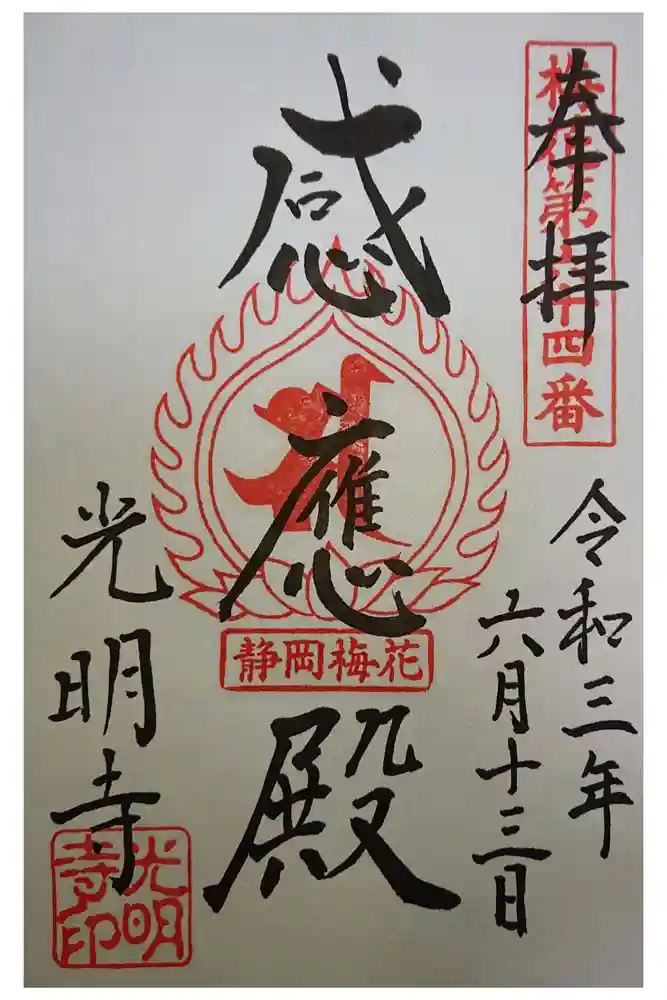 奉拝
梅花第六十四番
令和三年
六月十三日
感應殿
静岡梅花
光明寺
光明寺印